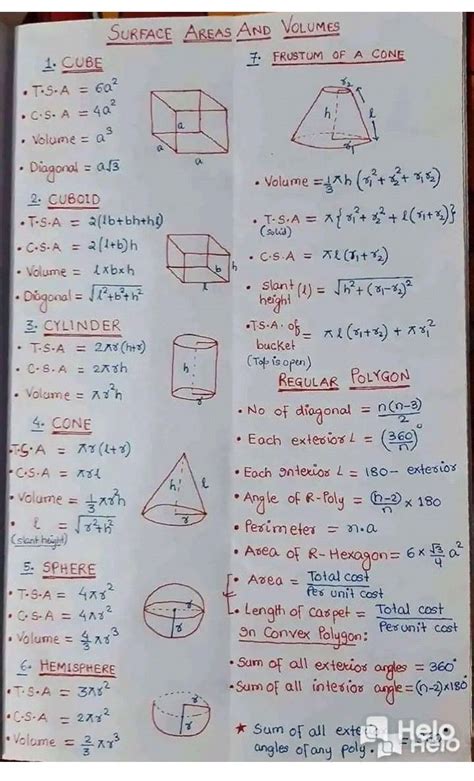 SURFACE AREAS AND VOLUMES
1. CUBE
• T.S.A = 6a²
• C.S.A = 4a²
• Volume = a³
• Diagonal = a√3
a
a
a
2. CUBOID
• T.S.A = 2(lb+bh+hl)
• C.S.A = 2(l+b)h
• Volume = l×b×h
• Diagonal = √l²+b²+h²
b
h
l
3. CYLINDER
• T.S.A = 2πr(h+r)
• C.S.A = 2πrh
• Volume = πr²h
h
r
4. CONE
• T.S.A = πr(l+r)
• C.S.A = πrl
• Volume = 1/3 πr²h
• l = √r²+h²
(slant height)
h
l
r
5. SPHERE
• T.S.A = 4πr²
• C.S.A = 4πr²
• Volume = 4/3 πr³
r
6. HEMISPHERE
• T.S.A = 3πr²
• C.S.A = 2πr²
• Volume = 2/3 πr³
r
7. FRUSTUM OF A CONE
r₂
h
l
r₁
• Volume = 1/3 πh (r₁²+r₂²+r₁r₂)
• T.S.A = π{r₁²+r₂²+l(r₁+r₂)}
(solid)
• C.S.A = πl(r₁+r₂)
• Slant height (l) = √h²+(r₁-r₂)²
• TSA of bucket = πl(r₁+r₂) + πr₁²
(Top is open)
REGULAR POLYGON
• No of diagonal = n(n-3)/2
• Each exterior L = (360/n)°
• Each Interior L = 180- exterior
• Angle of R-Poly = (n-2)/n × 180
• Perimeter = n.a
• Area of R-Hexagon = 6 × √3/4 a²
• Area = Total cost/Per unit cost
• Length of carpet = Total cost/Per unit cost
In Convex Polygon:
• Sum of all exterior angles = 360°
• Sum of all interior angle = (n-2)×180°
★ Sum of all
angles of any poly.
Helo
Helo